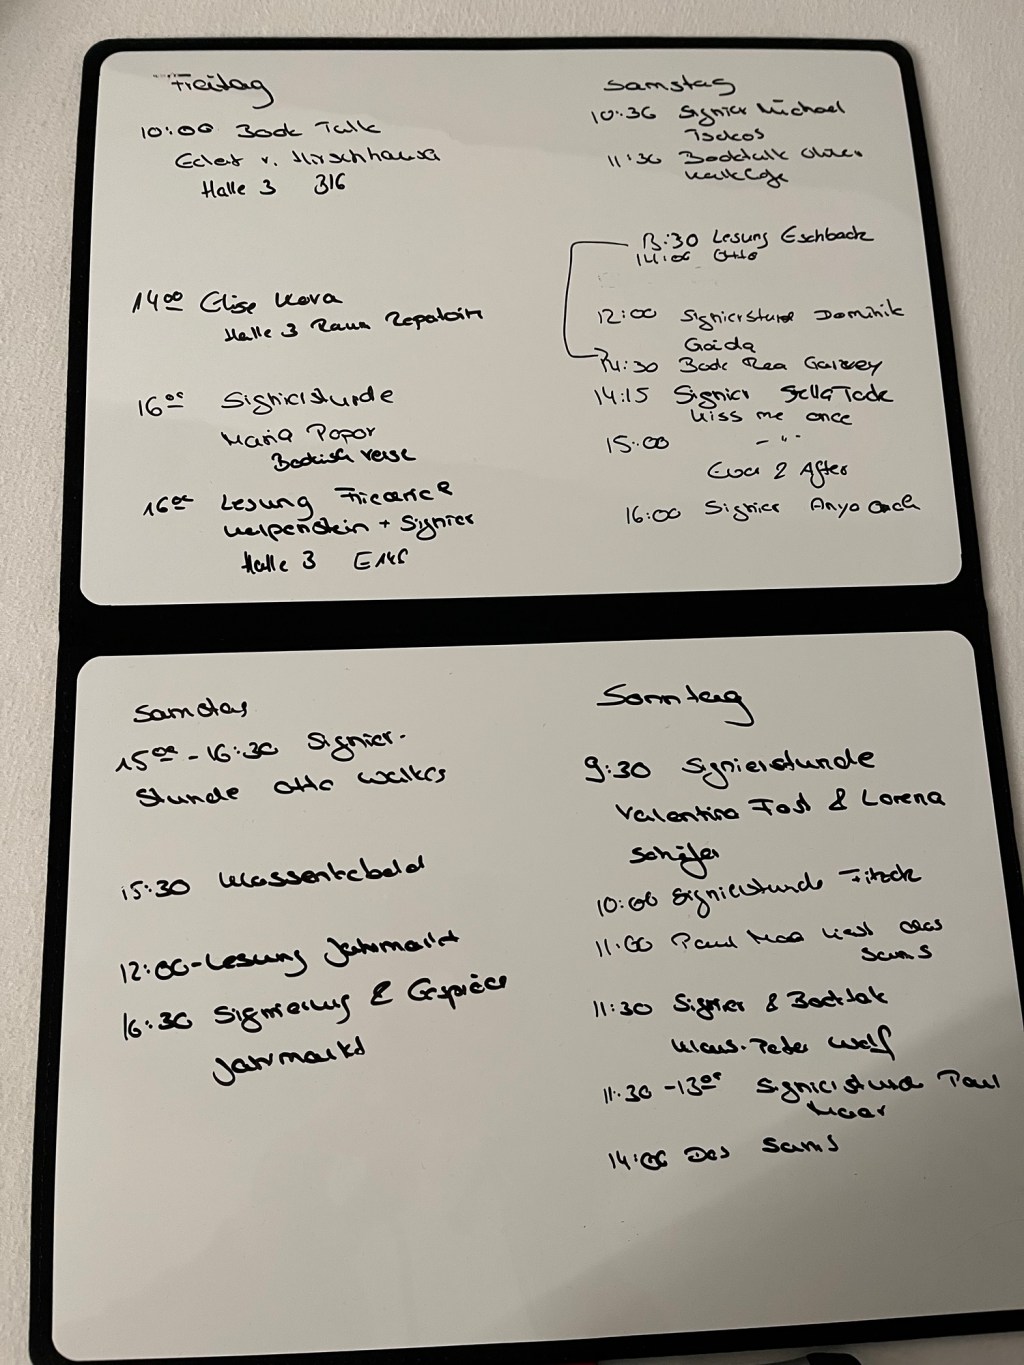 Freitag
10:00 Book Talk
Eckart v. Hirschhausen
Halle 3 B16
14 00 Elise Kova
Halle 3 Raum
16 00 Signierstunde
Maria Popov
16 00 Lesung Friederike
+ Signier
Halle 3
Samstag
10:30 Signier Michael
Tsokos
11:30 Booktalk Oliver
Kalkofe
13:30 Lesung Eschbach
14:00 Otto
12:00 Signierstunde Dominik
Gaida
14:30 Book Rea Garvey
14:15 Signier Stella Tack
Kiss me once
15:00 - " -
Ever & After
16:00 Signier Anya Omah
Samstag
15 00 - 16:30 Signier-
Stunde Otto Walkes
15:30 Klassenkobold
12:00-Lesung Jahrmarkt
16:30 Signierung & Gespräch
Jahrmarkt
Sonntag
9:30 Signierstunde
Valentina Fast & Lorena
Schäfer
10:00 Signierstunde Fitzek
11:00 Paul Maar liest das
Sams
11:30 Signier & Booktalk
Klaus-Peter Wolf
11:30 -13 00 Signierstunde Paul
Maar
14:00 Das Sams